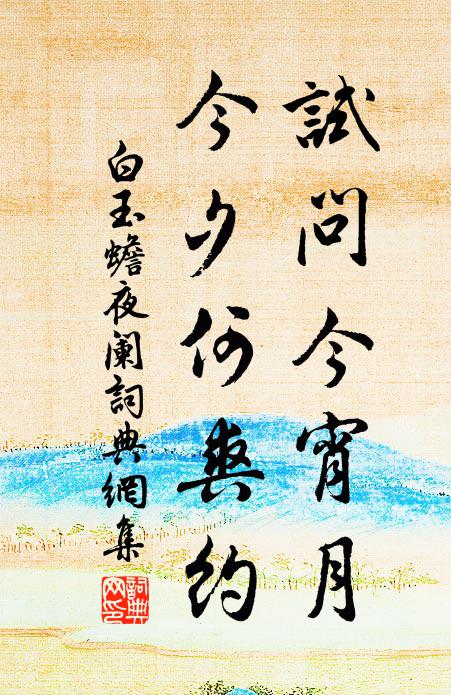 試問今宵月
今夕何爽約
白玉蟾夜闌詞典網集
詞典